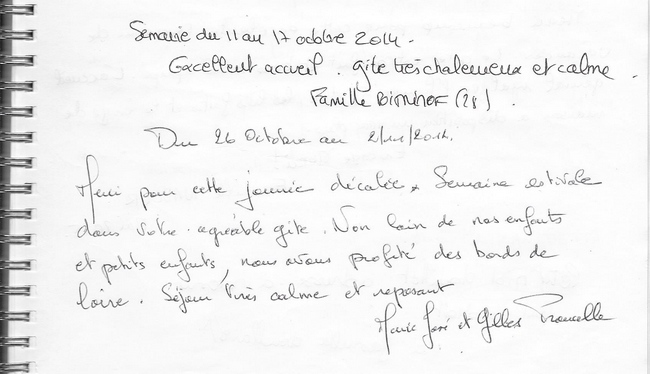 Semaine du 11 au 17 octobre 2014.
Excellent accueil. gite très chaleureux et calme.
Famille (28).
Du 26 Octobre au 2/11/2014.
Merci pour cette journée décalée. Semaine estivale
dans votre agréable gîte. Non loin de nos enfants
et petits enfants, nous avons profité des bords de
Loire. Séjour très calme et reposant
Marie José et Gilles